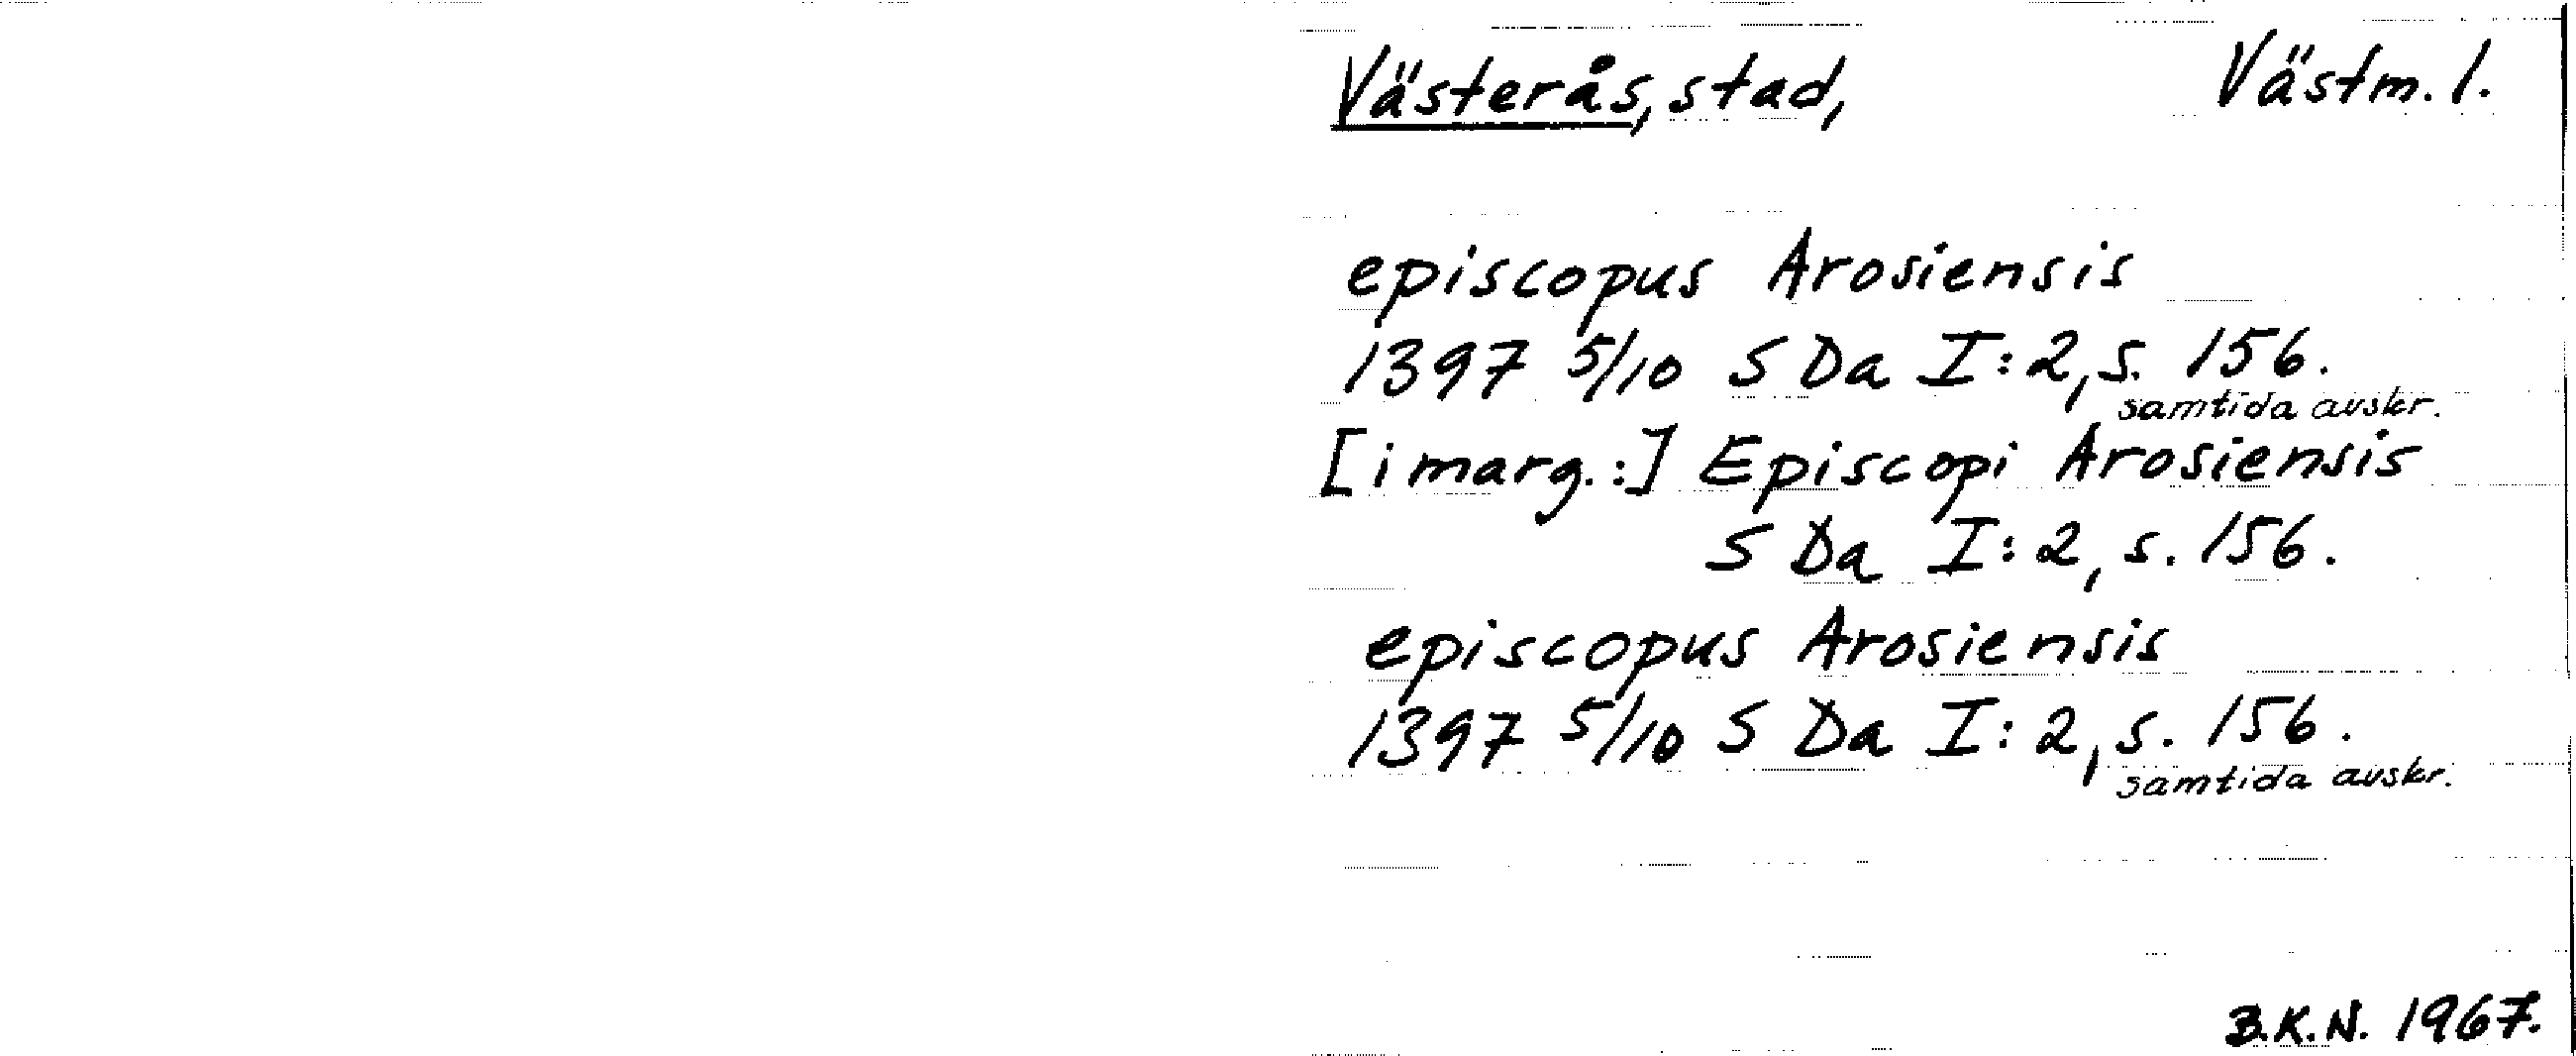 Västerås, stad, Västm. l.
episcopus Arosiensis
1397 5/10 S Da I:2, s. 156.
samtida avskr.
[i marg.:] Episcopi Arosiensis
S Da I:2, s. 156.
episcopus Arosiensis
1397 5/10 S Da I:2, s. 156.
samtida avskr.
B.K.N. 1967.